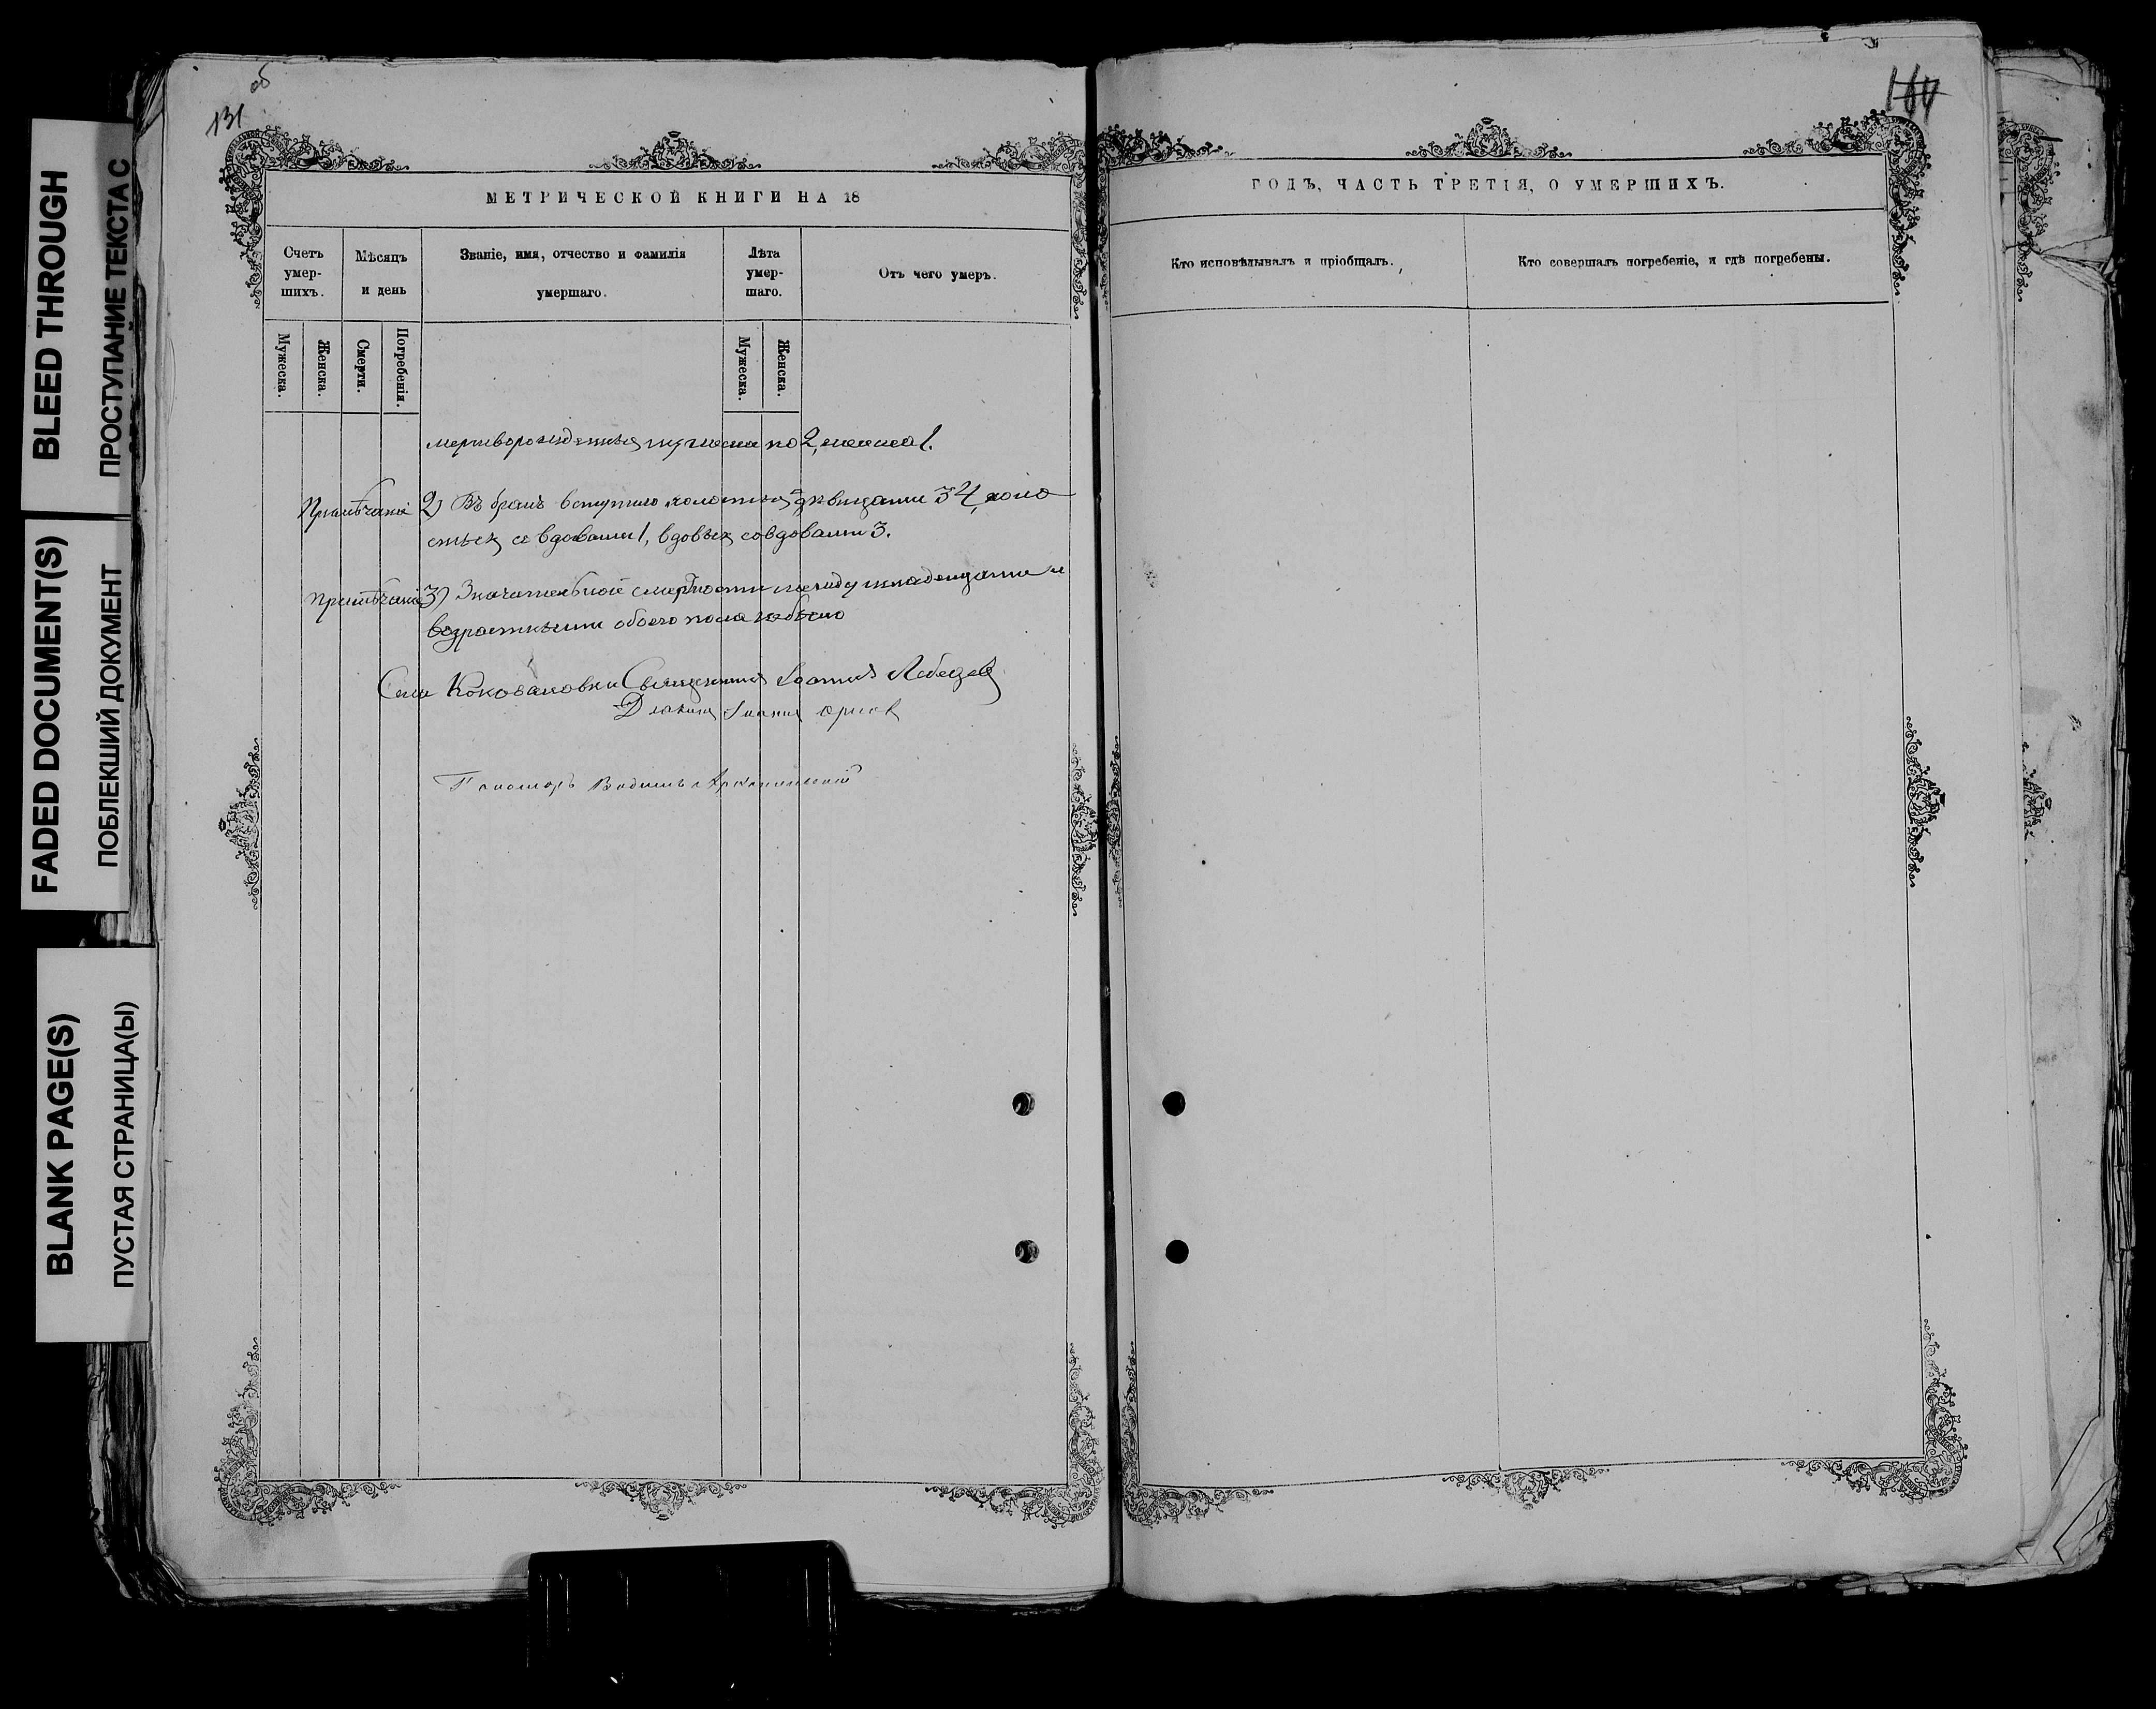 BLEED THROUGH
ПРОСТУПАНИЕ ТЕКСТА С
FADED DOCUMENT(S)
ПОБЛЕКШИЙ ДОКУМЕНТ
BLANK PAGE(S)
ПУСТАЯ СТРАНИЦА(Ы)
об
131
МЕТРИЧЕСКОЙ КНИГИ НА 18
Счетъ умер-шихъ.
Мѣсяцъ и день
Званіе, имя, отчество и фамилія умершаго.
Лѣта умер-шаго.
Отъ чего умеръ.
Мужеска.
Женска.
Смерти.
Погребенія.
Мужеска.
Женска.
мертворожденныхъ мужеска по 2, женска 1.
Примѣчаніе 2) Въ бракъ вступило холостыхъ дѣвицами 34, холо
стыхъ со вдовами 1, вдовыхъ со вдовами 3.
Примѣчаніе 3) Значительной смертности между младенцами и
возрастными обоего пола не было
Села Священникъ Іоаннъ Лебедевъ
Діаконъ Іоаннъ
Пономарь Архангельскій
164
ГОДЪ, ЧАСТЬ ТРЕТІЯ, О УМЕРШИХЪ.
Кто исповѣдывалъ и пріобщалъ.
Кто совершалъ погребеніе, и гдѣ погребены.